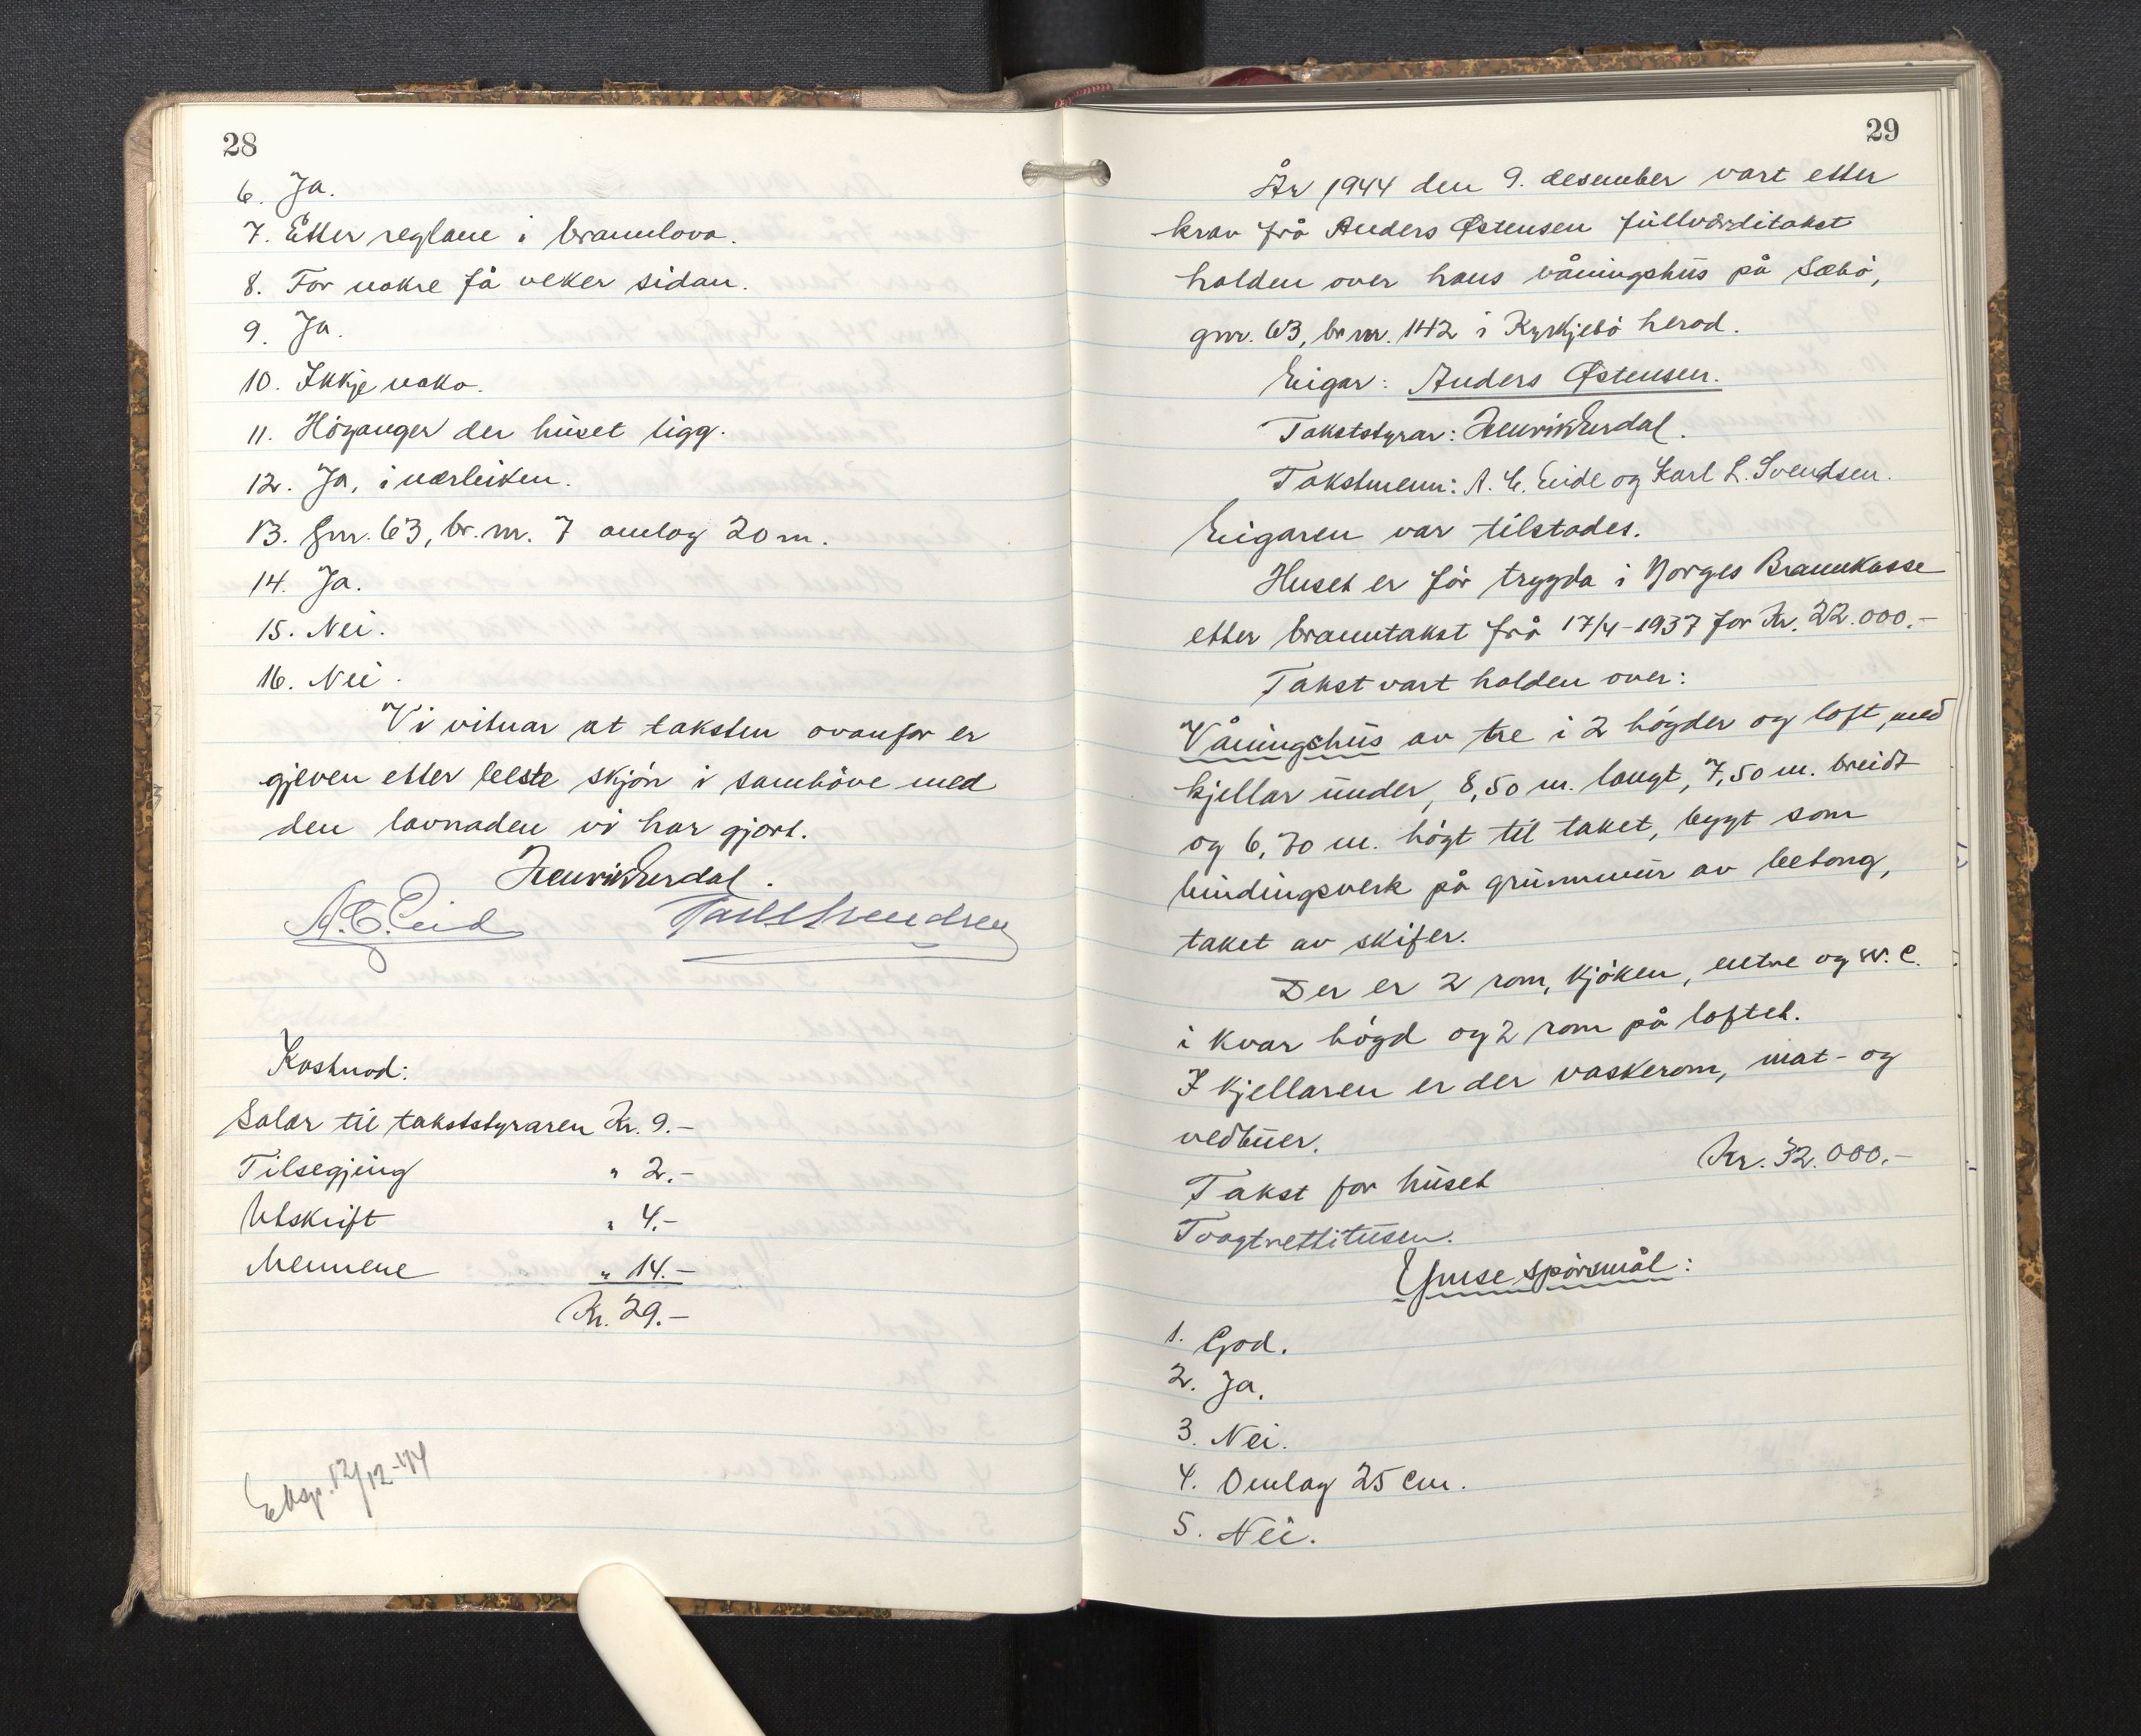 28
6. Ja.
7. Etter reglane i brannlova.
8. For nokre få veker sidan.
9. Ja.
10. Ikkje noko.
11. Höyanger der huset ligg.
12. Ja, i nærleiken.
13. Gnr. 63, br. nr. 7 omlag 20 m.
14. Ja.
15. Nei.
16. Nei.
Vi vitnar at taksten ovanfor er
gjeven etter beste skjön i samhöve med
den lovnaden vi har gjort.
Henrik Erdal.
A. E. Eide Karl L Svendsen
Kostnad:
Salær til takststyraren Kr. 9.-
Tilsegjing " 2.-
Utskrift " 4.-
Mennene " 14.-
Kr. 29.-
Eksp. 12/12-44
29
År 1944 den 9. desember vart etter
krav frå Anders Østensen fullverditakst
halden over hans våningshus på Sæbö,
gnr. 63, br.nr. 142 i Kyrkjebö herad.
Eigar: Anders Østensen.
Takststyrar: Henrik Erdal.
Takstmenn: A. E. Eide og Karl L. Svendsen.
Eigaren var tilstades.
Huset er för trygda i Norges Brannkasse
etter branntakst frå 17/4-1937 for Kr. 22.000.-
Takst vart halden over:
Våningshus av tre i 2 högder og loft, med
kjellar under, 8,50 m. langt, 7,50 m. breidt
og 6,70 m. högt til taket, bygt som
bindingsverk på grunnmur av betong,
taket av skifer.
Der er 2 rom, kjöken, entre og w.c.
i kvar högd og 2 rom på loftet.
I kjellaren er der vaskerom, mat- og
vedbuer.
Takst for huset Kr. 32.000.-
Toogtrettitusen.
Ymse spörsmål:
1. God.
2. Ja.
3. Nei.
4. Omlag 25 cm.
5. Nei.